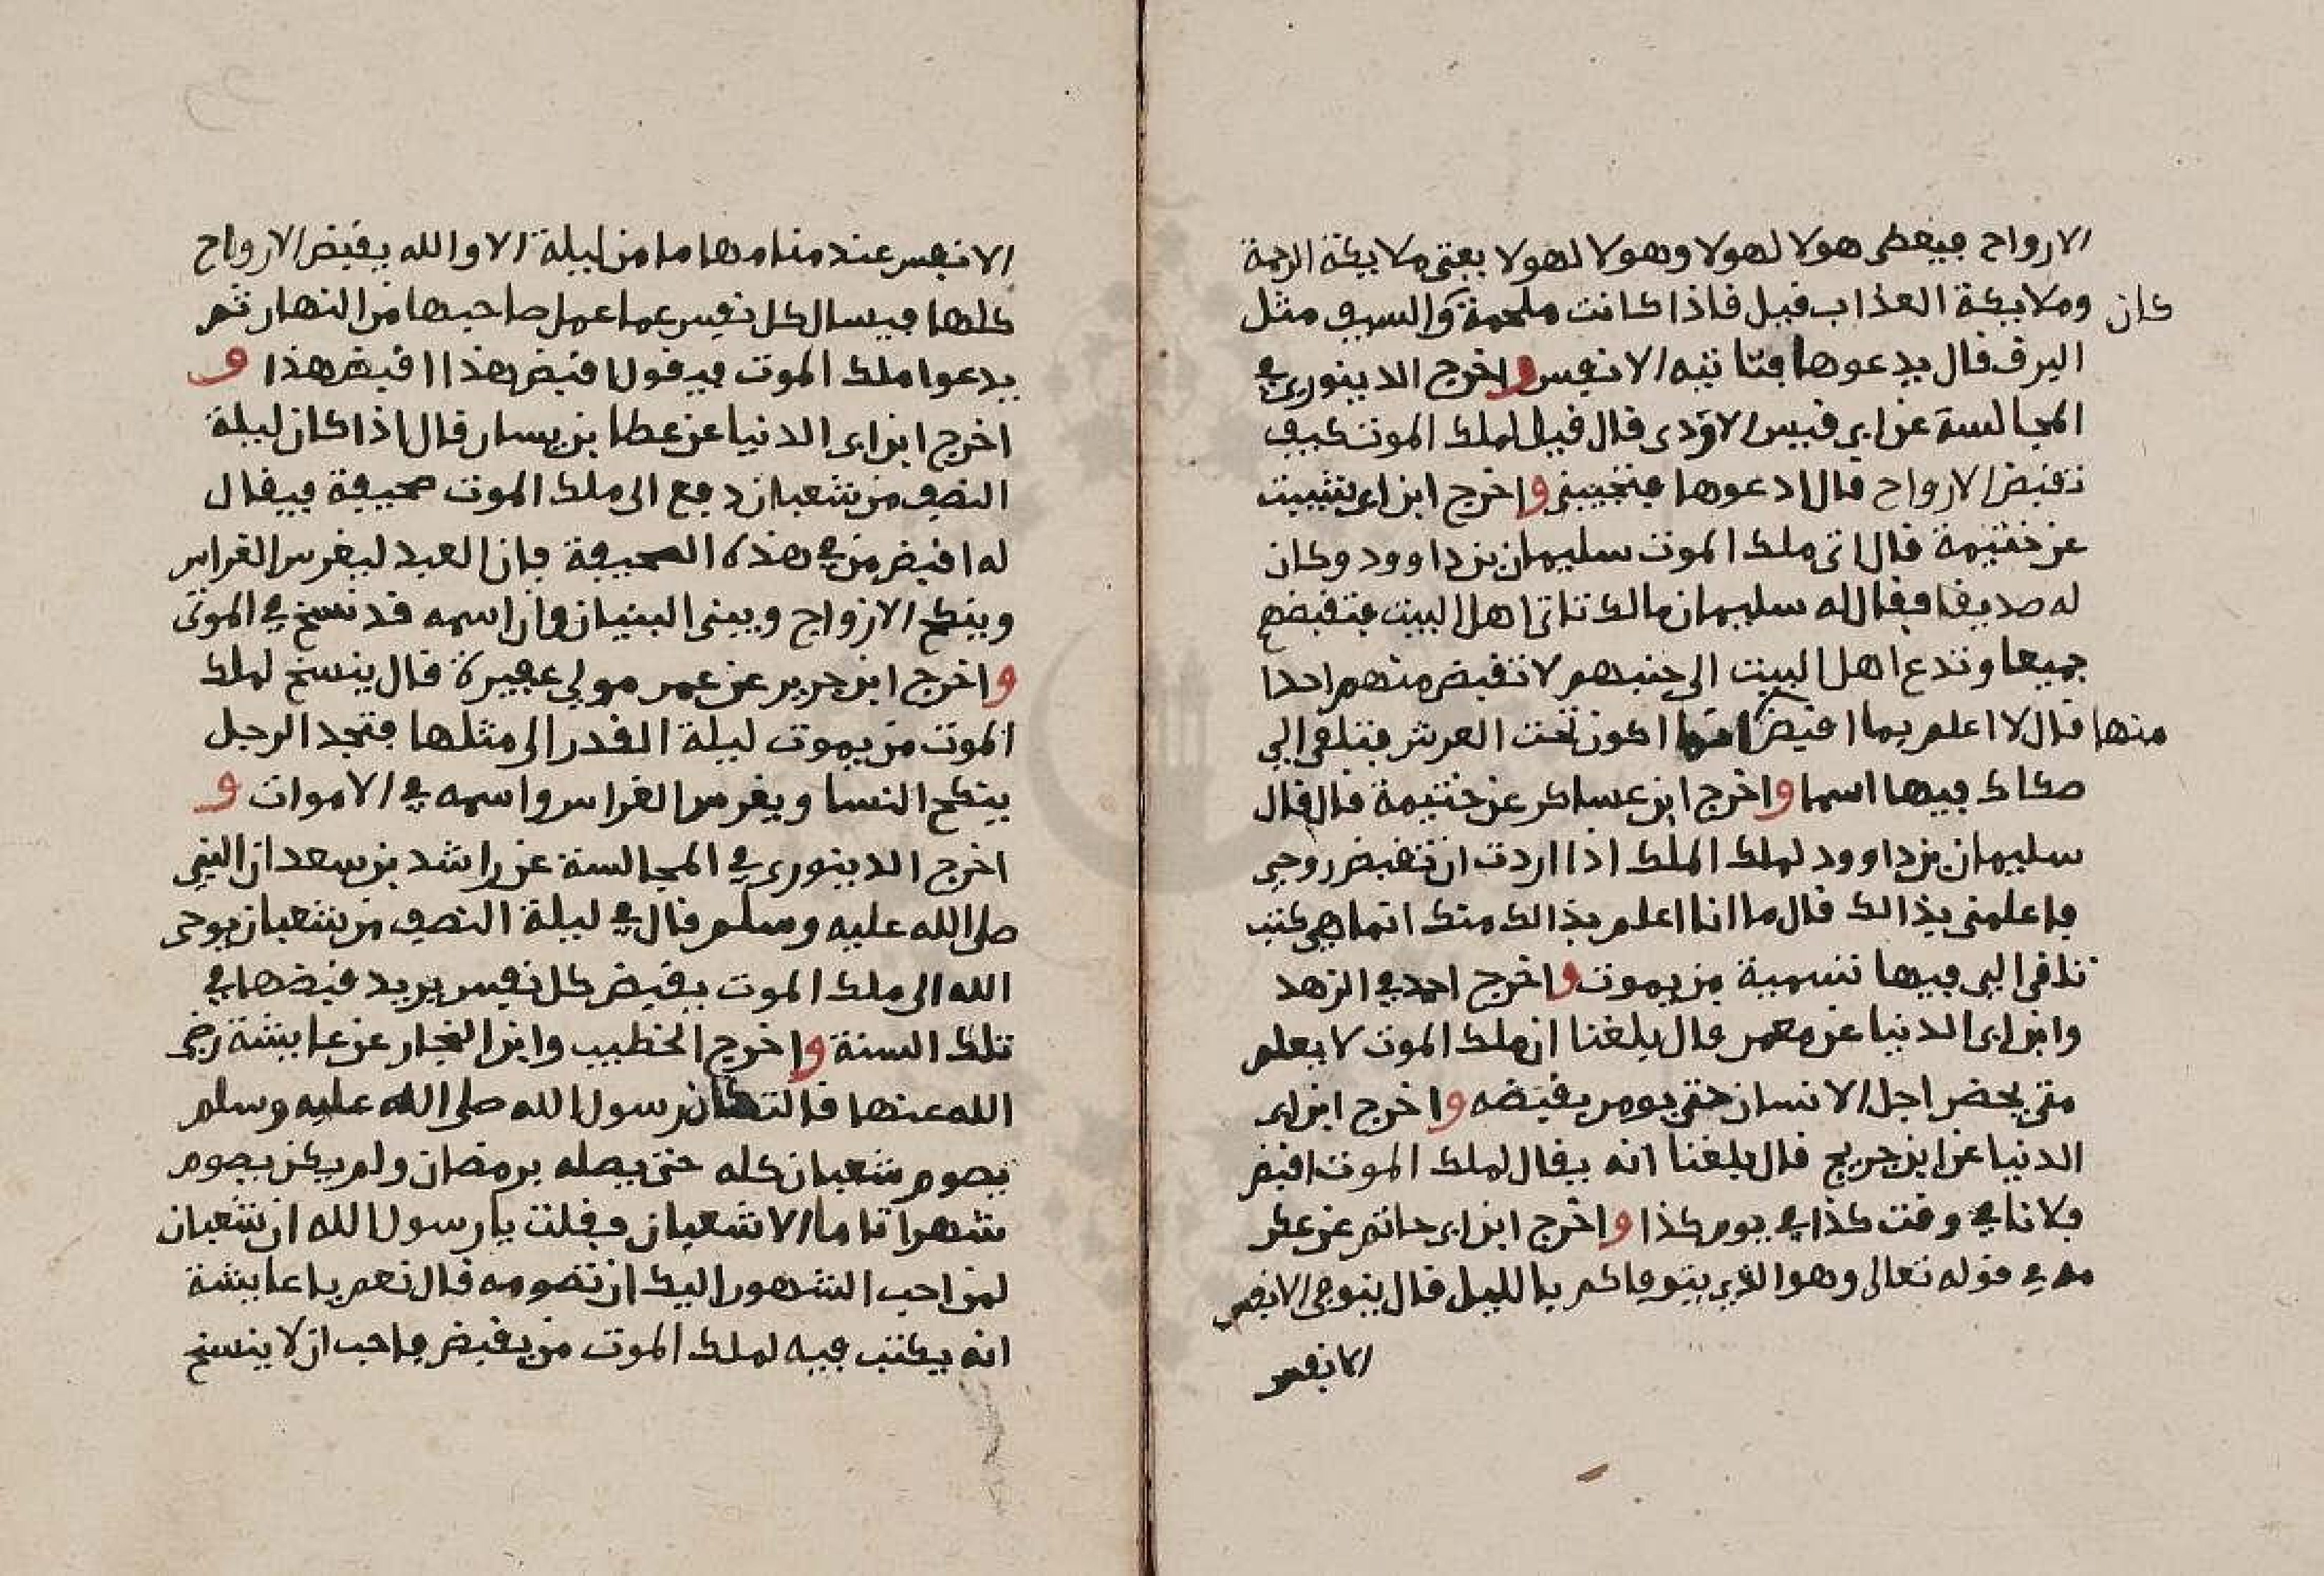 الارواح فيعطى هولا لهولا وهولا لهولا يعنى ملايكة الرحمة
وملايكة العذاب قيل فاذا كانت ملحمة وكان السيف مثل
البرق قال يدعوها فتاتيه الانفس واخرج الدينورى في
المجالسة عن ابى قبيس الاودى قال قيل لملك الموت كيف
تقبض الارواح قال ادعوها فتجيبنى واخرج ابن ابى شيبت
عن خثيمة قال اتى ملك الموت سليمان بن داوود وكان
له صديقا فقال له سليمان مالك تاتى اهل البيت فتقبضهم
جميعا وتدع اهل البيت الى جنبهم لا تقبض منهم احدا
قال لا اعلم بما اقبض منها انما اكون تحت العرش فيلقى الي
صكاك فيها اسما واخرج ابن عساكر عن خثيمة قال قال
سليمان بن داوود لملك الملك اذا اردت ان تقبض روحى
فاعلمنى بذالك قال ما انا اعلم بذالك منك انما هى كتب
تلقى الي فيها تسمية من يموت واخرج احمد في الزهد
وابن ابى الدنيا عن معمر قال بلغنا ان ملك الموت لا يعلم
متى يحضر اجل الانسان حتى يومر بقبضه واخرج ابن ابى
الدنيا عن ابن جريج قال بلغنا انه يقال لملك الموت اقبض
فلانا في وقت كذا في يوم كذا واخرج ابن ابى حاتم عن عكر
مه في قوله تعالى وهوا الذى يتوفاكم بالليل قال يتوفى الانفس
الانفس
الانفس عند منامها ما من ليلة الا والله يقبض الارواح
كلها فيسال كل نفس عما عمل صاحبها من النهار ثم
يدعوا ملك الموت فيقول اقبض هذا اقبض هذا و
اخرج ابن ابى الدنيا عن عطا بن يسار قال اذا كان ليلة
النصف من شعبان دفع الى ملك الموت صحيفة فيقال
له اقبض من في هذه الصحيفة فان العبد ليغرس الغراس
وينكح الازواج ويبنى البنيان وان اسمه قد نسخ في الموتى
واخرج ابن جرير عن عمر مولى عفيرة قال ينسخ لملك
الموت من يموت ليلة القدر الى مثلها فتجد الرجل
ينكح النسا ويغرس الغراس واسمه في الاموات و
اخرج الدينورى في المجالسة عن راشد بن سعد ان النبي
صلى الله عليه وسلم قال في ليلة النصف من شعبان يوحى
الله الى ملك الموت بقبض كل نفس يريد قبضها في
تلك السنة واخرج الخطيب وابن النجار عن عايشة رضى
الله عنها قالت كان رسول الله صلى الله عليه وسلم
يصوم شعبان كله حتى يصله برمضان ولم يكن يصوم
شهرا تاما الا شعبان فقلت يا رسول الله ان شعبان
لمن احب الشهور اليك ان تصومه قال نعم يا عايشة
انه يكتب فيه لملك الموت من يقبض فاحب ان لا ينسخ